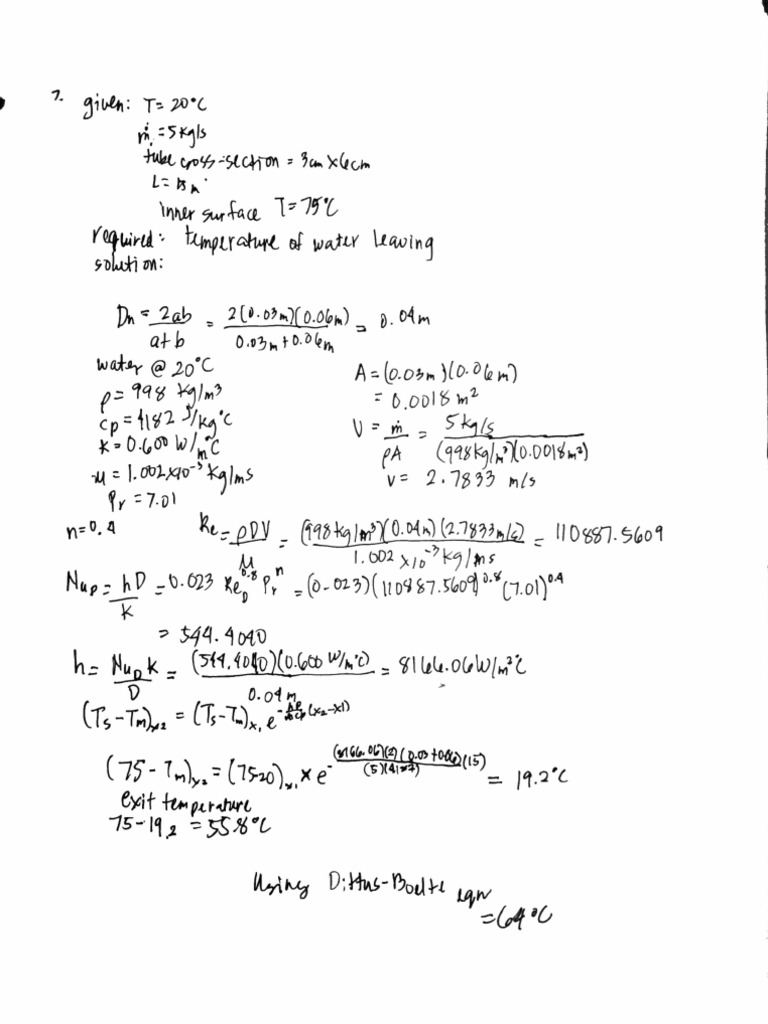 7. given: T = 20°C
ṁ = 5 kg/s
tube cross-section = 3cm x 6cm
L = 15 m
inner surface T = 75°C
required: temperature of water leaving
solution:
Dn = 2ab/a+b = 2(0.03m)(0.06m)/0.03m+0.06m = 0.04m
water @ 20°C
A = (0.03m)(0.06m)
ρ = 998 kg/m³
= 0.0018 m²
cp = 4182 J/kg°C
V = ṁ/ρA = 5 kg/s/(998kg/m³)(0.0018m²)
k = 0.600 W/m°C
μ = 1.002x10⁻³ kg/ms
v = 2.7833 m/s
Pr = 7.01
n = 0.4
Re = ρDV/μ = (998kg/m³)(0.04m)(2.7833m/s)/1.002 x10⁻³ kg/ms = 110887.5609
Nu_D = hD/k = 0.023 Re_D^0.8 Pr^n = (0.023)(110887.5609)^0.8 (7.01)^0.4
= 544.4040
h = Nu_D k/D = (544.4040)(0.600 W/m°C)/0.04m = 8166.06 W/m²°C
(Ts-Tm)x2 = (Ts-Tm)x1 e^-(x2-x1)
(75-Tm)x2 = (75-20)x1 x e^-(8166.06)(2)(0.03+0.06)/(5)(15) = 19.2°C
exit temperature
75-19.2 = 55.8°C
Using Dittus-Boelte eqn
= 64°C